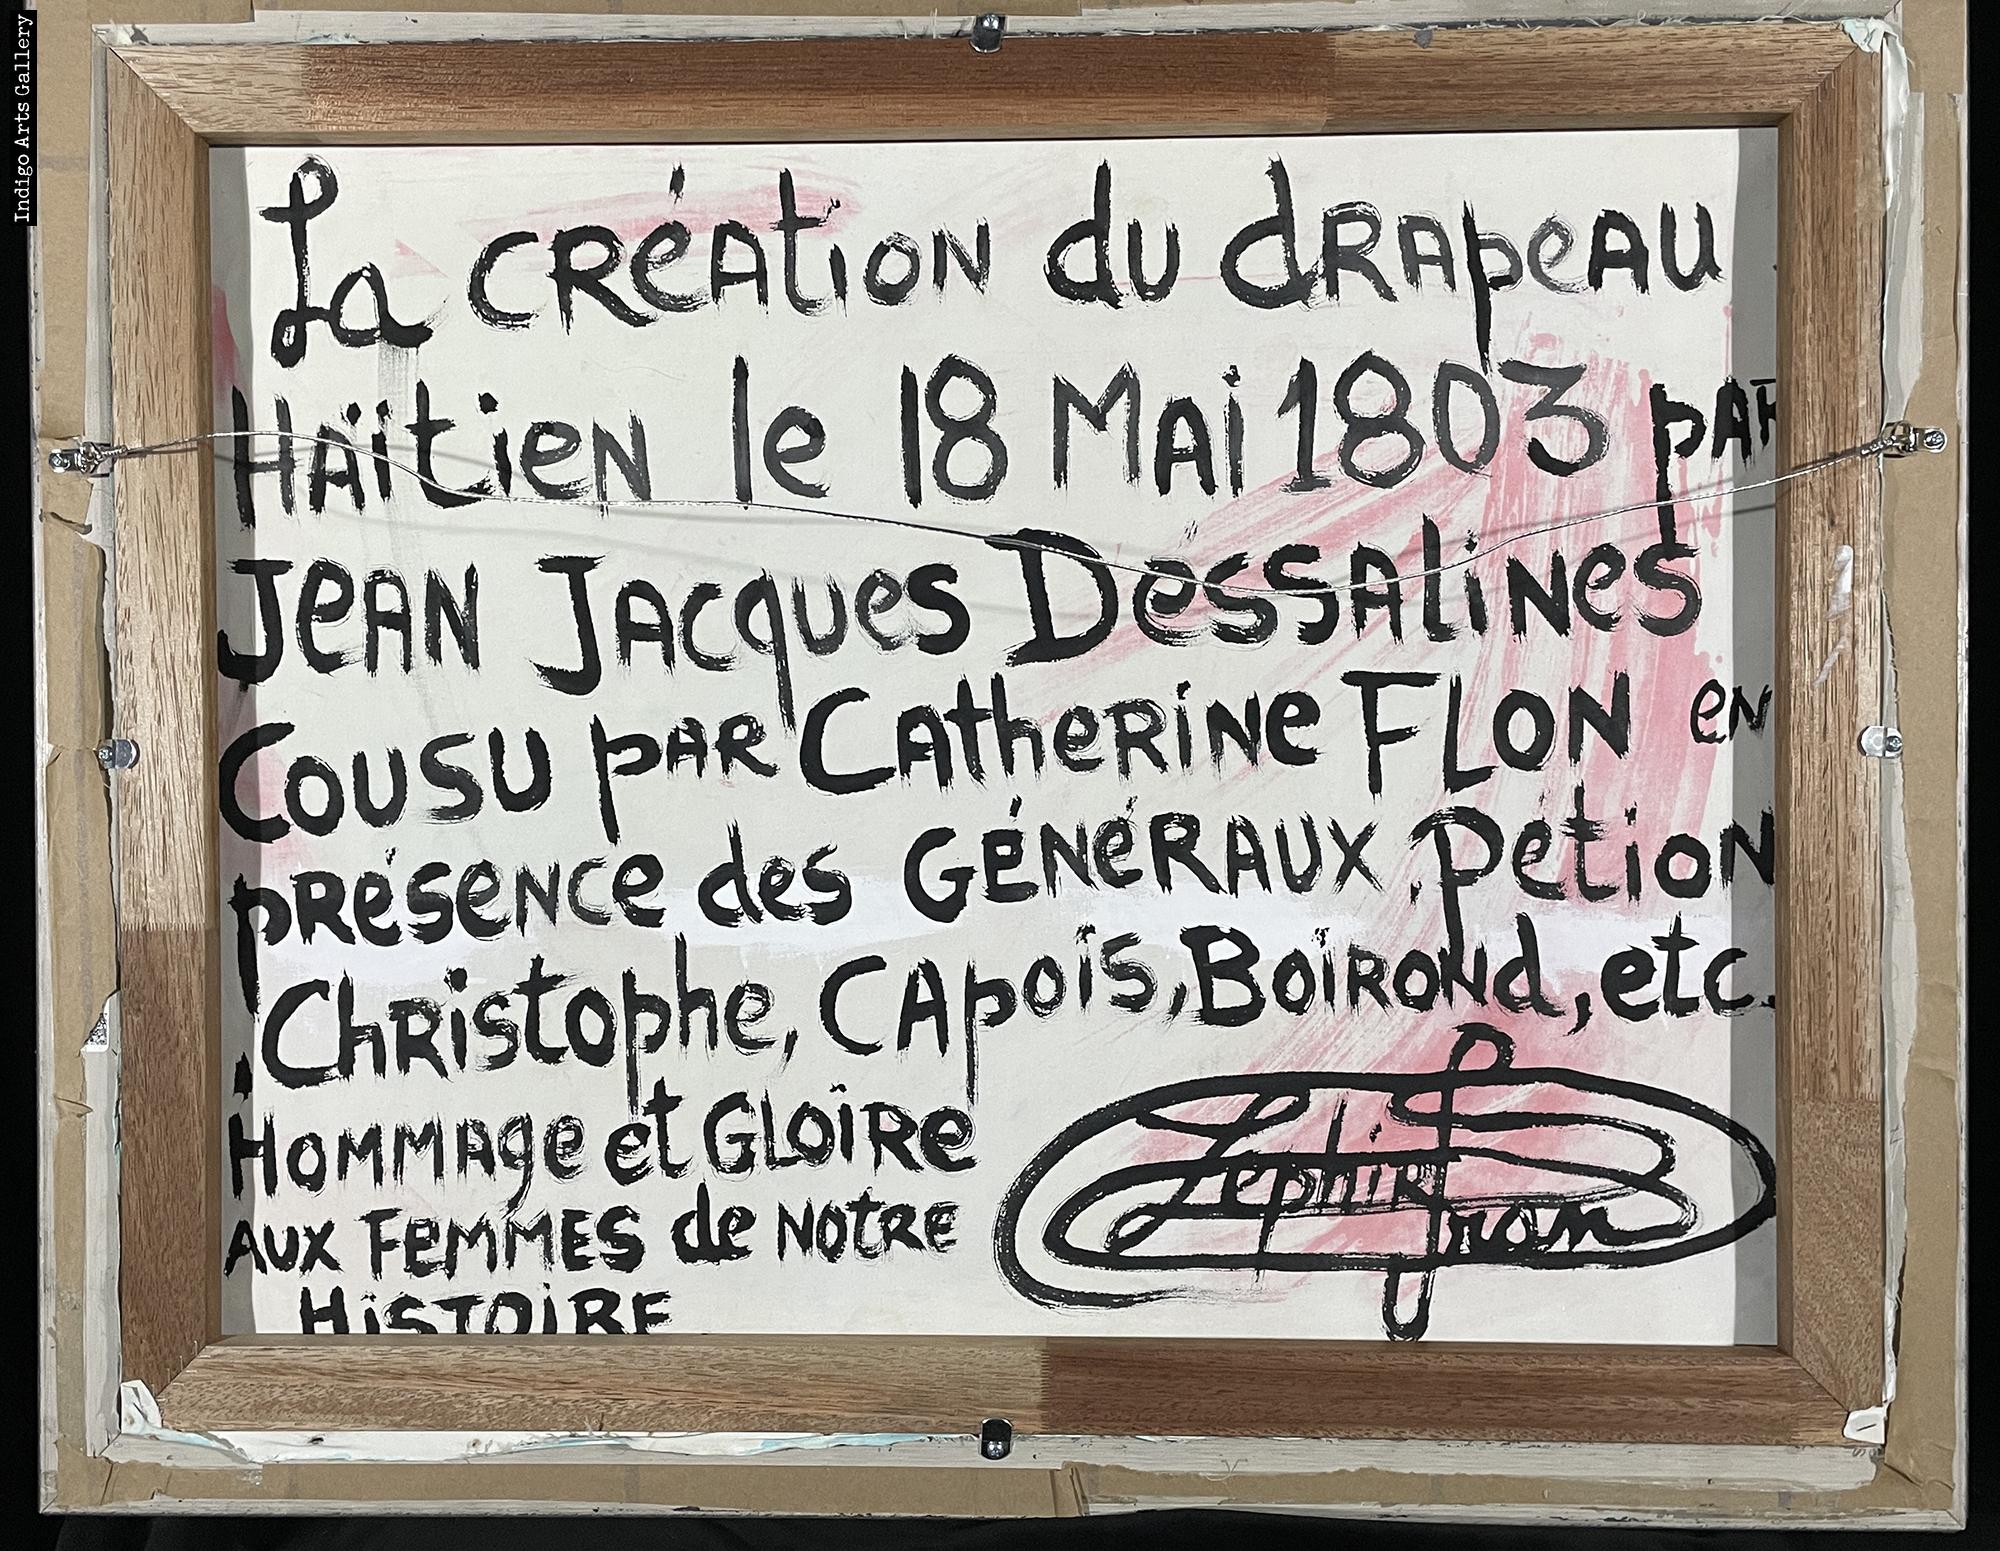 Indigo Arts Gallery
La création du drapeau
Haïtien le 18 Mai 1803 par
Jean Jacques Dessalines
Cousu par Catherine Flon en
présence des Généraux, Pétion
.Christophe, Capois, Boirond, etc.
Hommage et Gloire
aux Femmes de notre
Histoire
Zéphirin
fran